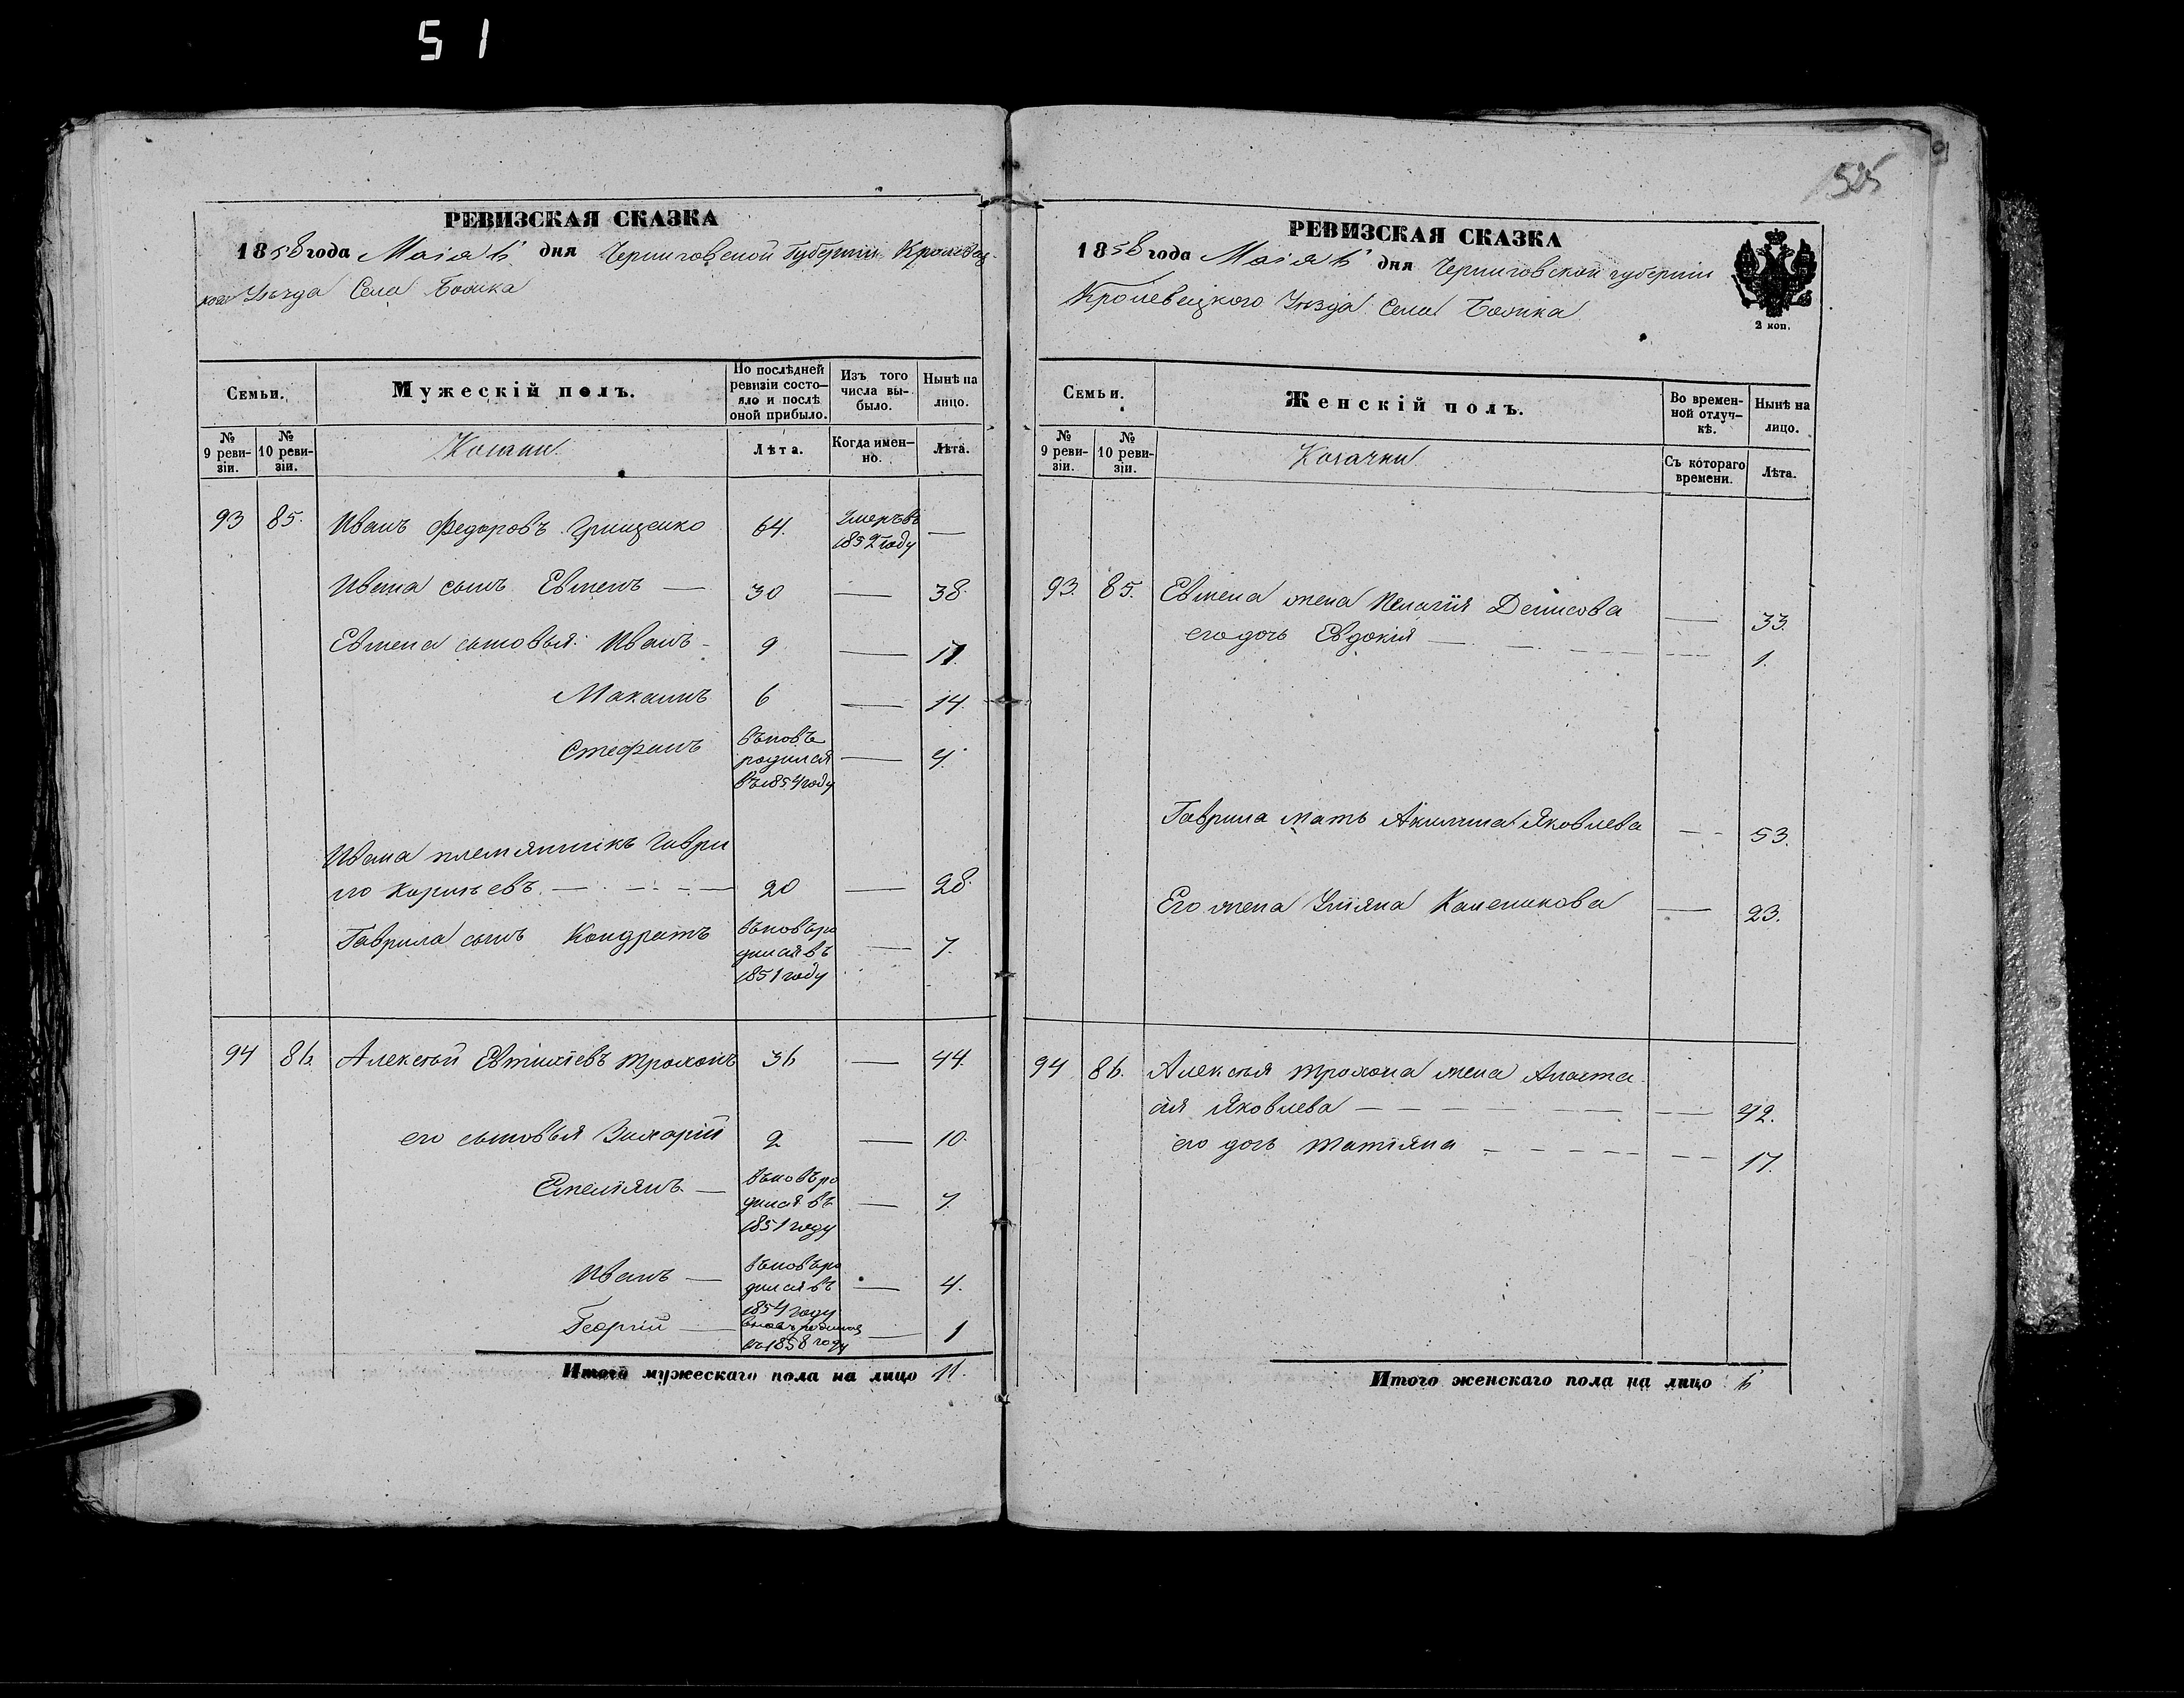 51
525
РЕВИЗСКАЯ СКАЗКА
1858 года Маія 6 дня Черниговской Губерніи Кролевец-
кого Уѣзда Села Бобика
Семьи.
Мужескій полъ.
По послѣдней ревизіи состо-
яло и послѣ оной прибыло.
Изъ того числа вы-
было.
Нынѣ на лицо.
№ 9 реви-
зіи.
№ 10 реви-
зіи.
Козаки
Лѣта.
Когда имен-
но.
Лѣта.
93 85. Иванъ Федоровъ Грищенко 64. Умеръ въ 1852 году —
Ивана сынъ Евменъ — 30 — 38.
Евмена сыновья: Иванъ - 9 — 17.
Максимъ 6 — 14.
Стефанъ вновь родился въ 1854 году — 4.
Ивана племянникъ Гаври
ло Карпьевъ — 20 — 28.
Гаврила сынъ Кондратъ вновь ро
дился въ 1851 году — 7.
94 86. Алексѣй Евтихіевъ Трохонъ 36 — 44.
его сыновья Захарій 2 — 10.
Емеліянъ — вновь ро
дился въ 1851 году — 7.
Иванъ — вновь ро
дился въ 1854 году — 4.
Георгій — вновь родился въ 1858 году — 1
Итого мужескаго пола на лицо 11.
РЕВИЗСКАЯ СКАЗКА
1858 года Маія 6 дня Черниговской губерніи
Кролевецкого Уѣзда Села Бобика
2 коп.
Семьи.
Женскій полъ.
Во времен-
ной отлуч-
кѣ.
Нынѣ на лицо.
№ 9 реви-
зіи.
№ 10 реви-
зіи.
Козачки
Съ котораго времени.
Лѣта.
93. 85. Евмена жена Пелагія Денисова — 33.
его дочь Евдокія — 1.
Гаврила мать Акилина Яковлева — 53.
Его жена Уліяна Каленикова — 23.
94 86. Алексѣя Трохона жена Анаста
сія Яковлева — 42.
его дочь Татіяна — 17.
Итого женскаго пола на лицо 6